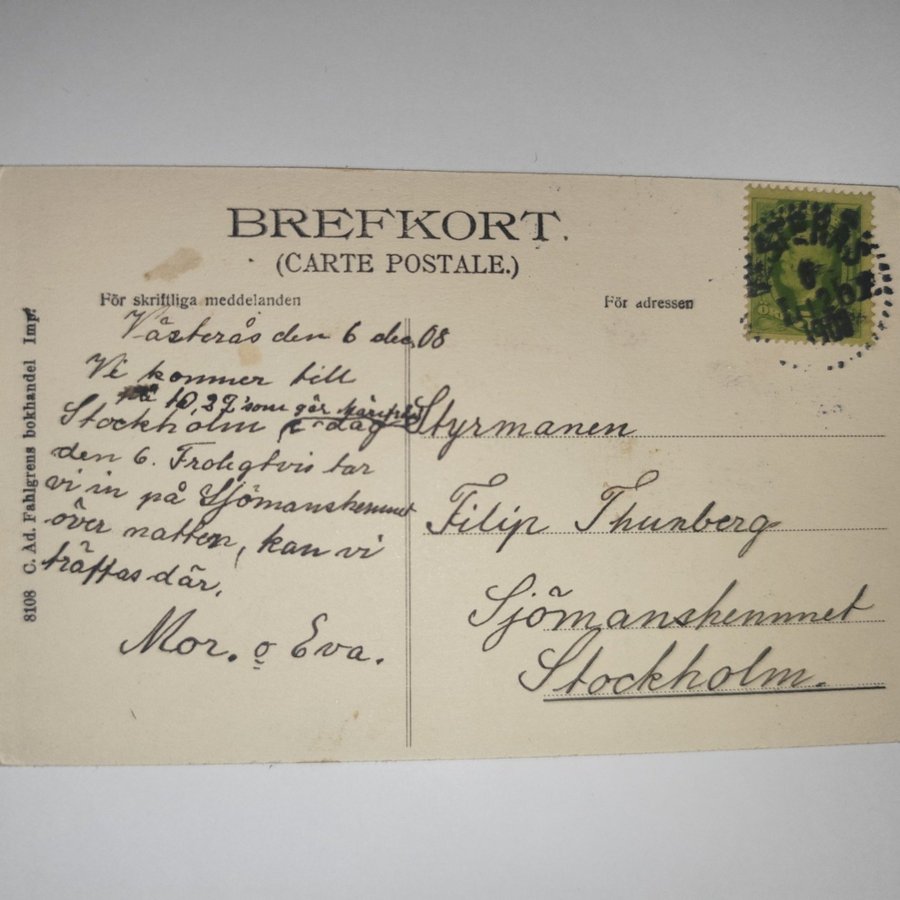 BREFKORT.
(CARTE POSTALE.)
För skriftliga meddelanden
För adressen
Västerås den 6 dec, 08
Vi kommer till
på 10,32 som går
Stockholm i dag
den 6. Troligtvis tar
vi in på Sjömanshemmet
över natten, kan vi
träffas där.
Mor. o Eva.
Styrmanen
Filip Thunberg
Sjömanshemmet
Stockholm.
8108 C. Ad. Fahlgrens bokhandel Imp.